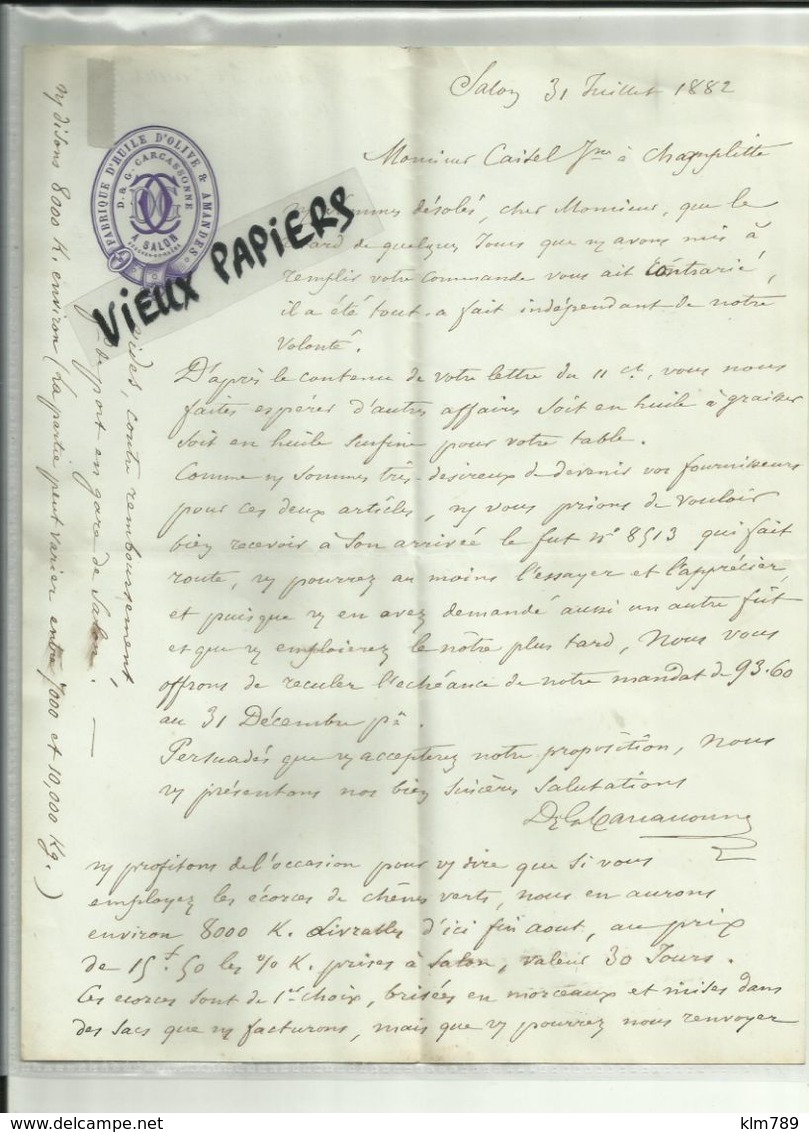 Salon 31 Juillet 1882
FABRIQUE D'HUILE D'OLIVE & AMANDES
D. & G. CARCASSONNE
A SALON
VIEUX PAPIERS
Monsieur Caisel Jne à Champlitte
sommes désolés, cher Monsieur, que le
retard de quelques Jours que ns avons mis à
remplir votre commande vous ait contrarié,
il a été tout-a fait indépendant de notre
Volonté.
D'après le contenu de votre lettre du 11 ct, vous nous
faites espérer d'autres affaires soit en huile à graisser
soit en huile surfine pour votre table.
Comme ns sommes très-desireux de devenir vos fournisseurs
pour ces deux articles, ns vous prions de vouloir
bien recevoir à son arrivée le fut No 8513 qui fait
route, vs pourrez au moins l'essayer et l'apprécier,
et puisque vs en avez demandé aussi un autre fût
et que vs emploierez le nôtre plus tard, Nous vous
offrons de reculer l'echéance de notre mandat de 93.60
au 31 Décembre pn.
Persuadés que vs accepterez notre proposition, Nous
vs présentons nos bien sincères salutations
D & G Carcassonne
ns profitons de l'occasion pour vs dire que si vous
employez les écorces de chênes verts, nous en aurons
environ 8000 K. Livrables d'ici fin aout, au prix
de 15f.50 les % K. prises à Salon, valeur 30 Jours.
Ces ecorces sont de 1er choix, brisées en morceaux et mises dans
des sacs que ns facturons, mais que vs pourrez nous renvoyer
vides, contre remboursement,
de port en gare de Salon. —
ns disons 8000 K. environ (La partie peut varier entre 7000 et 10,000 Kg.)
klm789